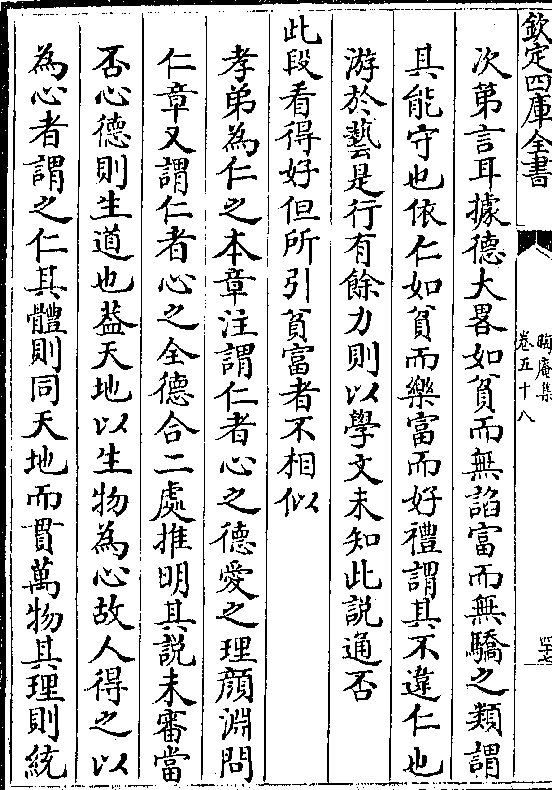 欽定四庫全書
晦庵集
卷五十八
次第言耳據德大畧如貧而無諂富而無驕之類謂
其能守也依仁如貧而樂富而好禮謂其不違仁也
游於藝是行有餘力則以學文未知此説通否
此段看得好但所引貧富者不相似
孝弟為仁之本章注謂仁者心之德愛之理顔淵問
仁章又謂仁者心之全德合二處推明其説未審當
否心德則生道也葢天地以生物為心故人得之以
為心者謂之仁其體則同天地而貫萬物其理則統